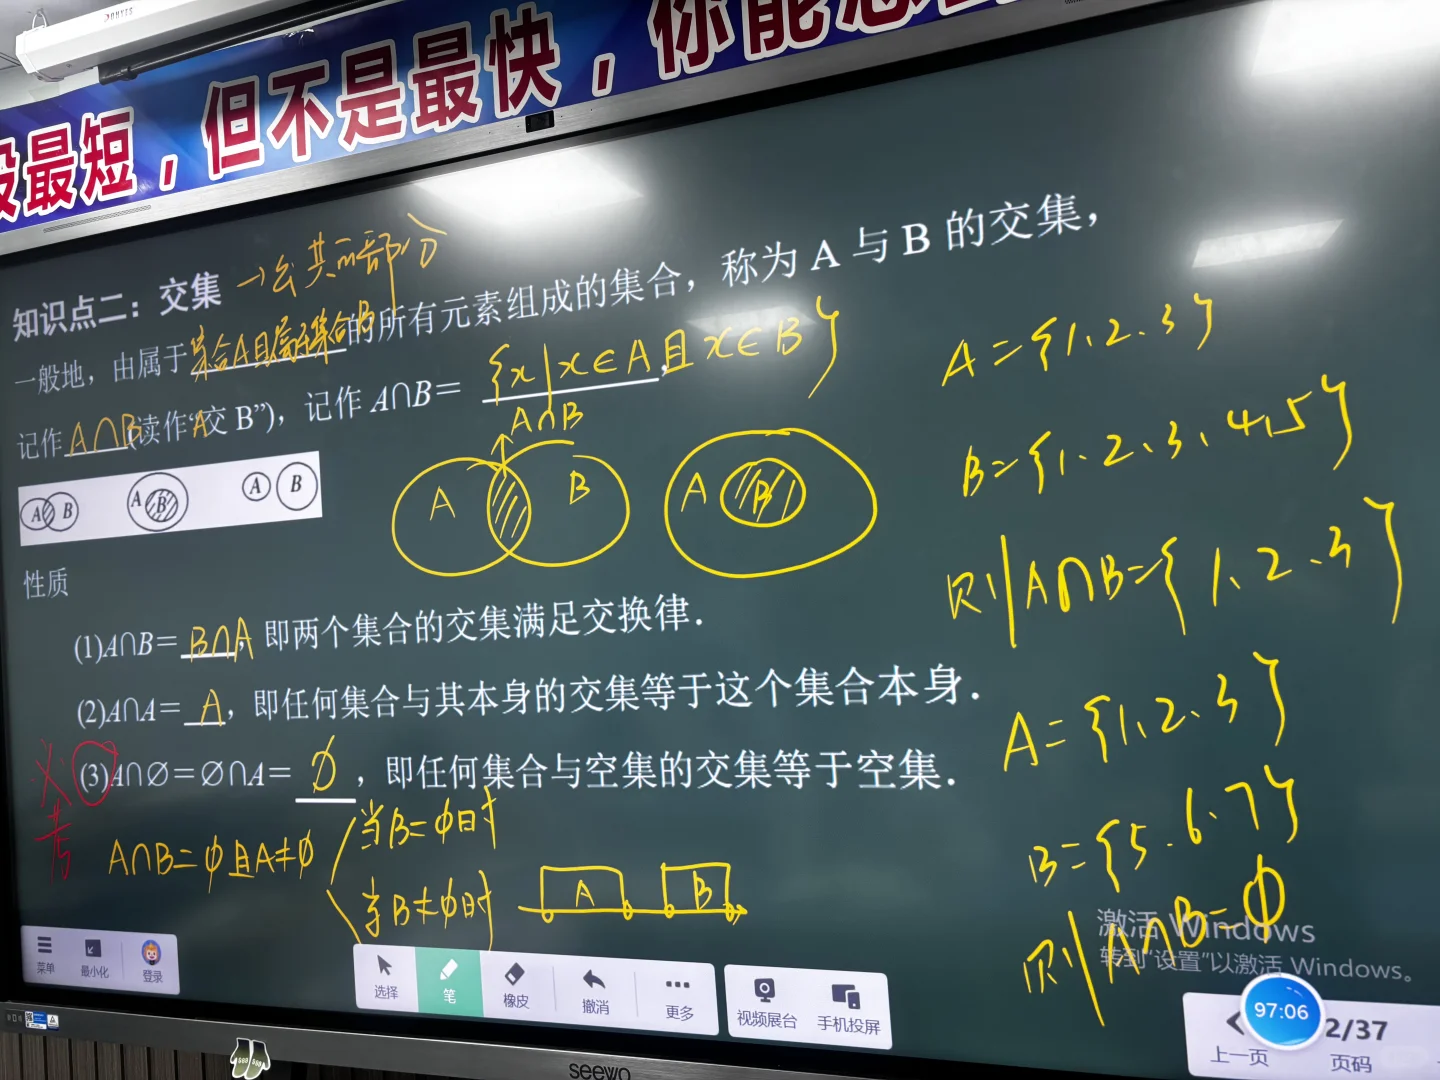 最短，但不是最快，你能
知识点二：交集 →公共的部分
一般地，由属于集合A且属于集合B的所有元素组成的集合，称为 A 与 B 的交集，
记作A∩B(读作“A交 B”)，记作 A∩B＝{x|x∈A且x∈B}
A∩B
A B
A B
A B
A B
A B
性质
(1)A∩B＝B∩A，即两个集合的交集满足交换律．
(2)A∩A＝A，即任何集合与其本身的交集等于这个集合本身．
(3)A∩∅＝∅∩A＝∅，即任何集合与空集的交集等于空集．
必考
A∩B=∅且A≠∅
当B=∅时
当B≠∅时
A B
A={1、2、3}
B={1、2、3、4、5}
则A∩B={1、2、3}
A={1、2、3}
B={5、6、7}
则A∩B=∅
激活 Windows
转到“设置”以激活 Windows。
菜单
最小化
登录
选择
笔
橡皮
撤消
更多
视频展台
手机投屏
97:06
2/37
上一页
页码
seewo